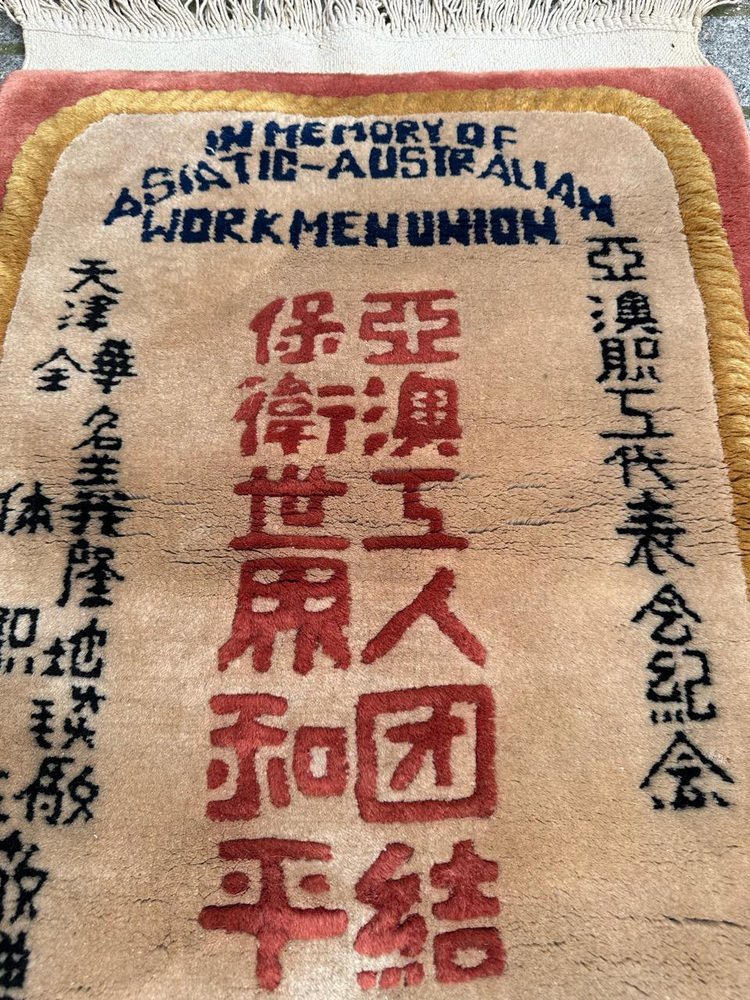 IN MEMORY OF
ASIATIC-AUSTRALIAN
WORKMEN UNION
亞澳职工代表会紀念
亞澳工人团結
保衛世界和平
天津華名主義隆地毯厰
全体职